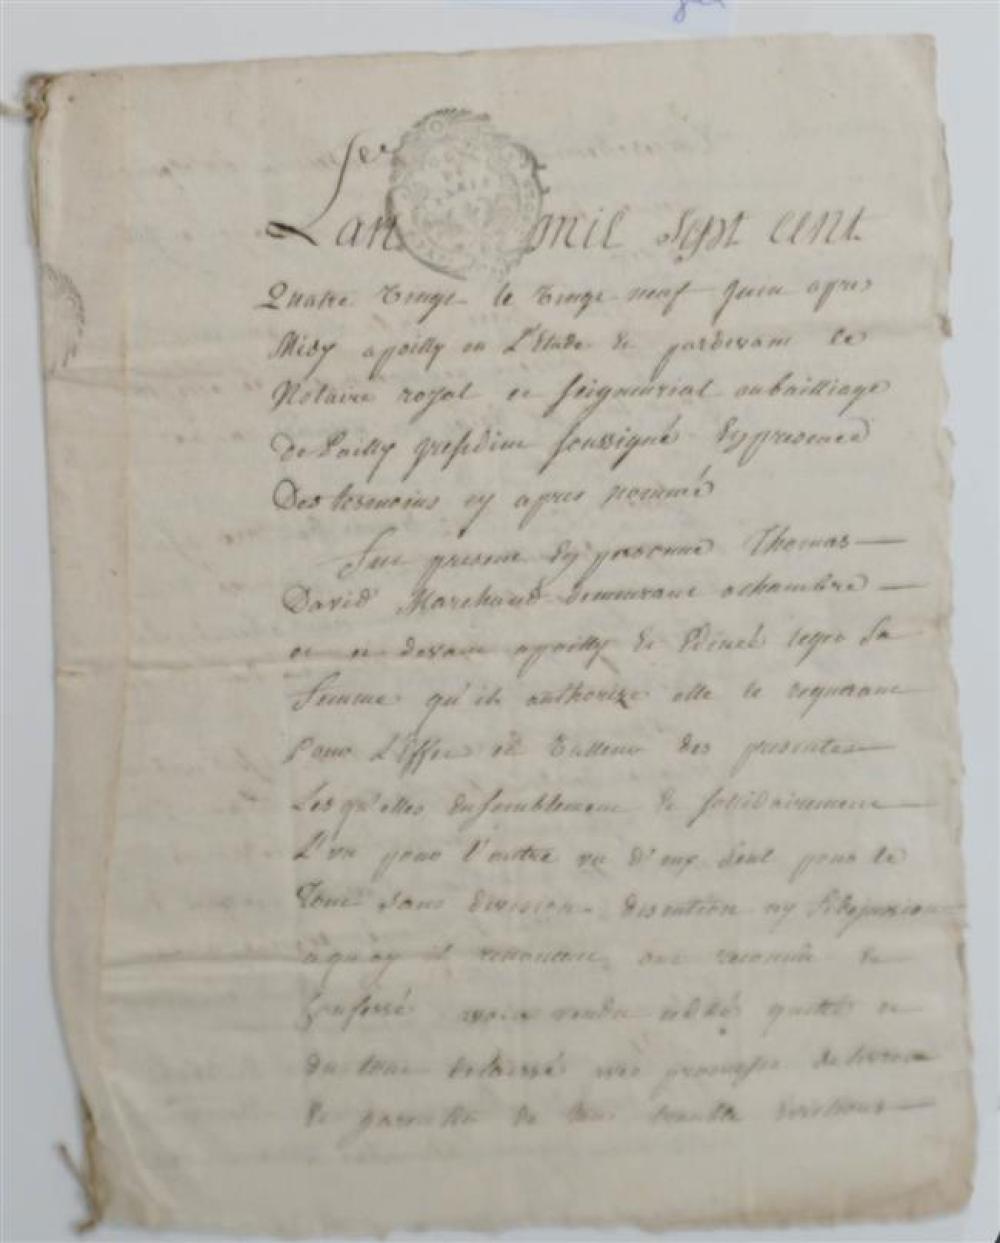 Ser
Lan mil sept cent
Quatre vingt le vingt neuf juin apres
Midy apoilly en L'Etude & pardevant le
Notaire royal et seigneurial aubailliage
De Poilly soussigné En presence
Des tesmoins cy apres nommé
Fut present En personne Thomas
David Marchand demeurant achambre
cy devant apoilly & legro Sa
femme qu'il authorize elle le requerant
Pour L'Effet et valleur des presentes
Lesqu'elles Ensemblement & sollidairement
L'un pour l'autre un d'eux seul pour le
Tout sans division discution ny
aquoy il renoncent ont reconnu &
Confessé avoir vendu cédé quitté et
du tout delaissé avec promesse de
& garentir de tous trouble Evictions